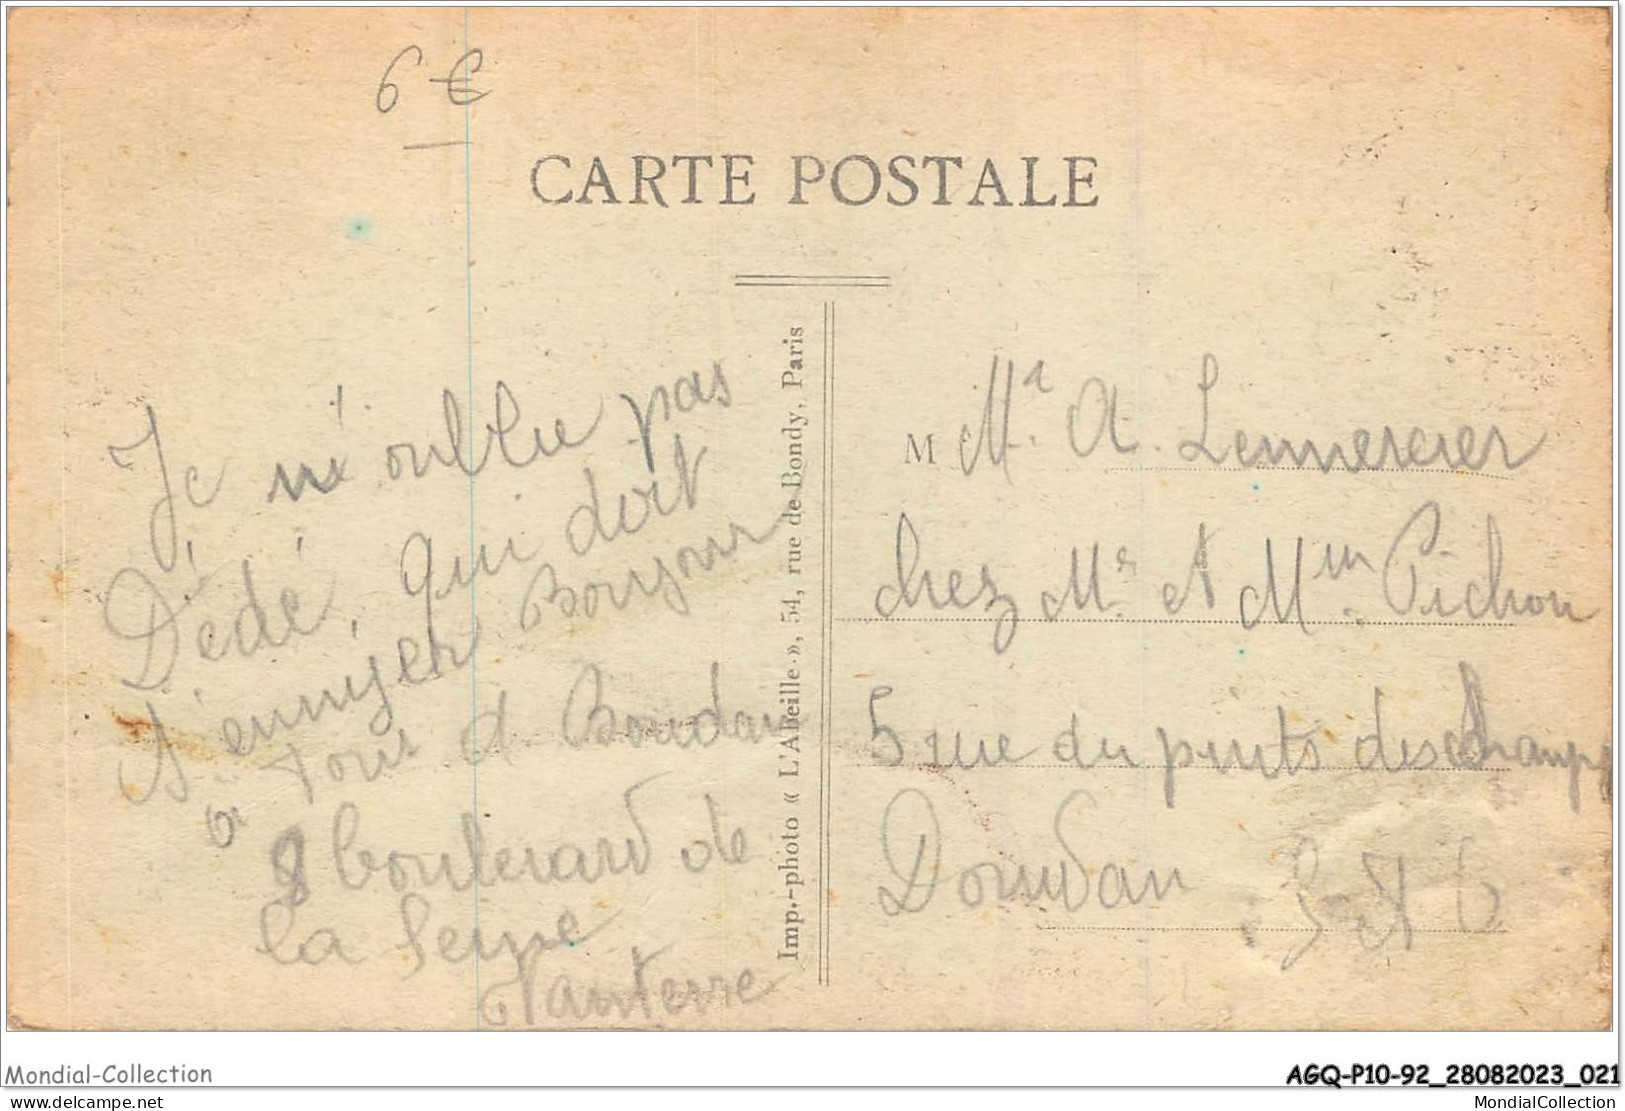 6 €
CARTE POSTALE
Je n'oublie pas
Dédé, qui doit
s'ennuyer Bonjour
à tous A Boudan
8 boulevard de
la Seine
Nanterre
Imp.-photo « L'Abeille », 54, rue de Bondy, Paris
M Mr. A. Lemmercier
chez Mr. et Mme. Pichon
5 rue du puits des champs
Dourdan S et O
Mondial-Collection
AGQ-P10-92_28082023_021
www.delcampe.net
MondialCollection